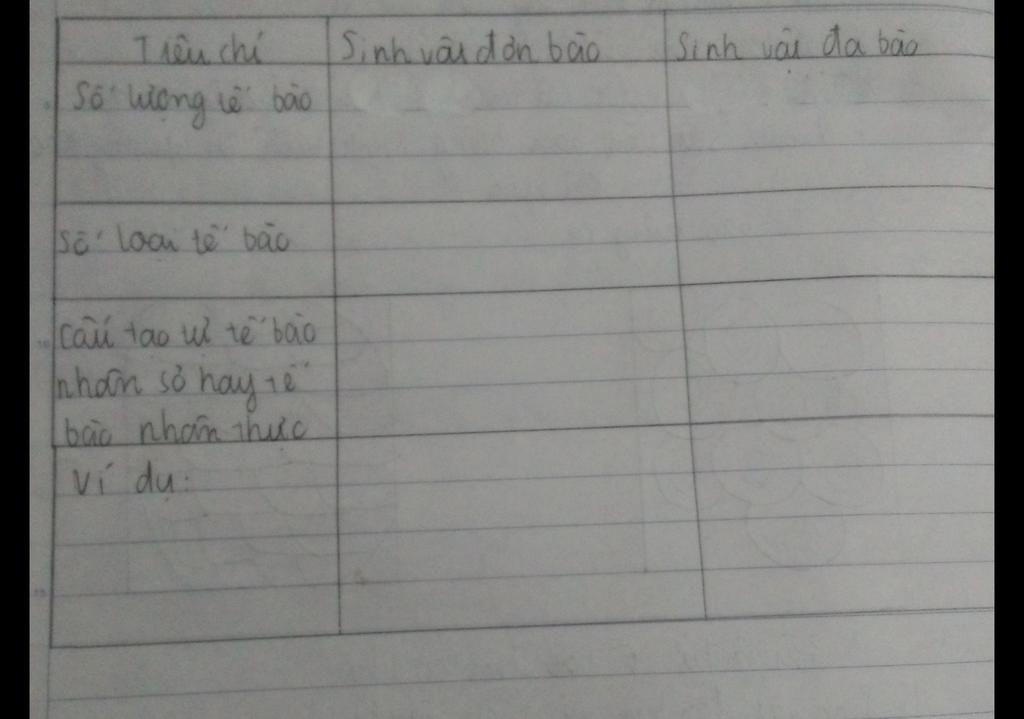 Tiêu chí
Sinh vật đơn bào
Sinh vật đa bào
Số lượng tế bào
Số loại tế bào
Cấu tạo từ tế bào
nhân sơ hay tế
bào nhân thực
Ví dụ: